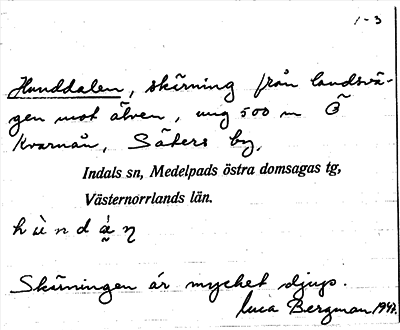 1-3
Hunddalen, skärning från landsvä-
gen mot älven, ung 500 m Ö
Kvarnån, Säters by.
Indals sn, Medelpads östra domsagas tg,
Västernorrlands län.
h ù n d à̰ ŋ
Skärningen är mycket djup.
Luca Bergman 1947.